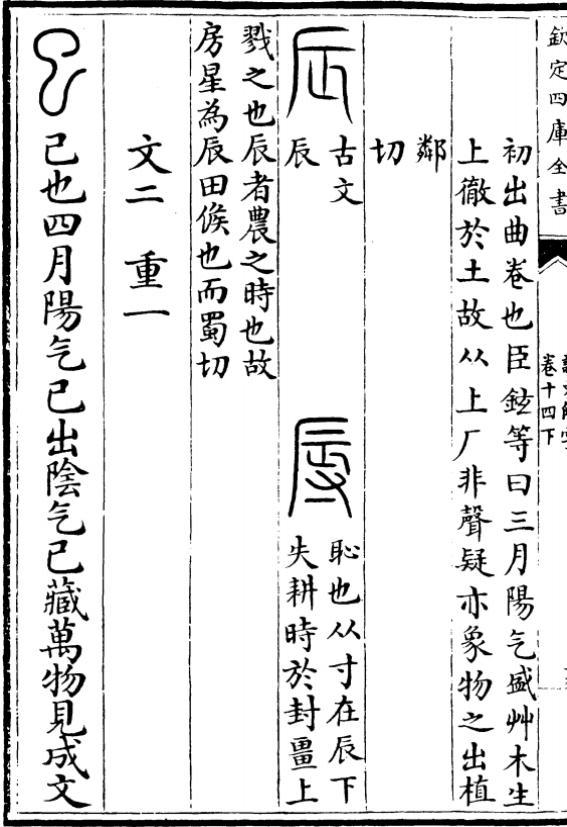 欽定四庫全書
卷十四下
初出曲卷也臣鉉等曰三月陽气盛艸木生
上徹於土故从上厂非聲疑亦象物之出植
鄰
切
古文
辰
恥也从寸在辰下
失耕時於封畺上
戮之也辰者農之時也故
房星為辰田候也而蜀切
文二 重一
已也四月陽气已出陰气已藏萬物見成文